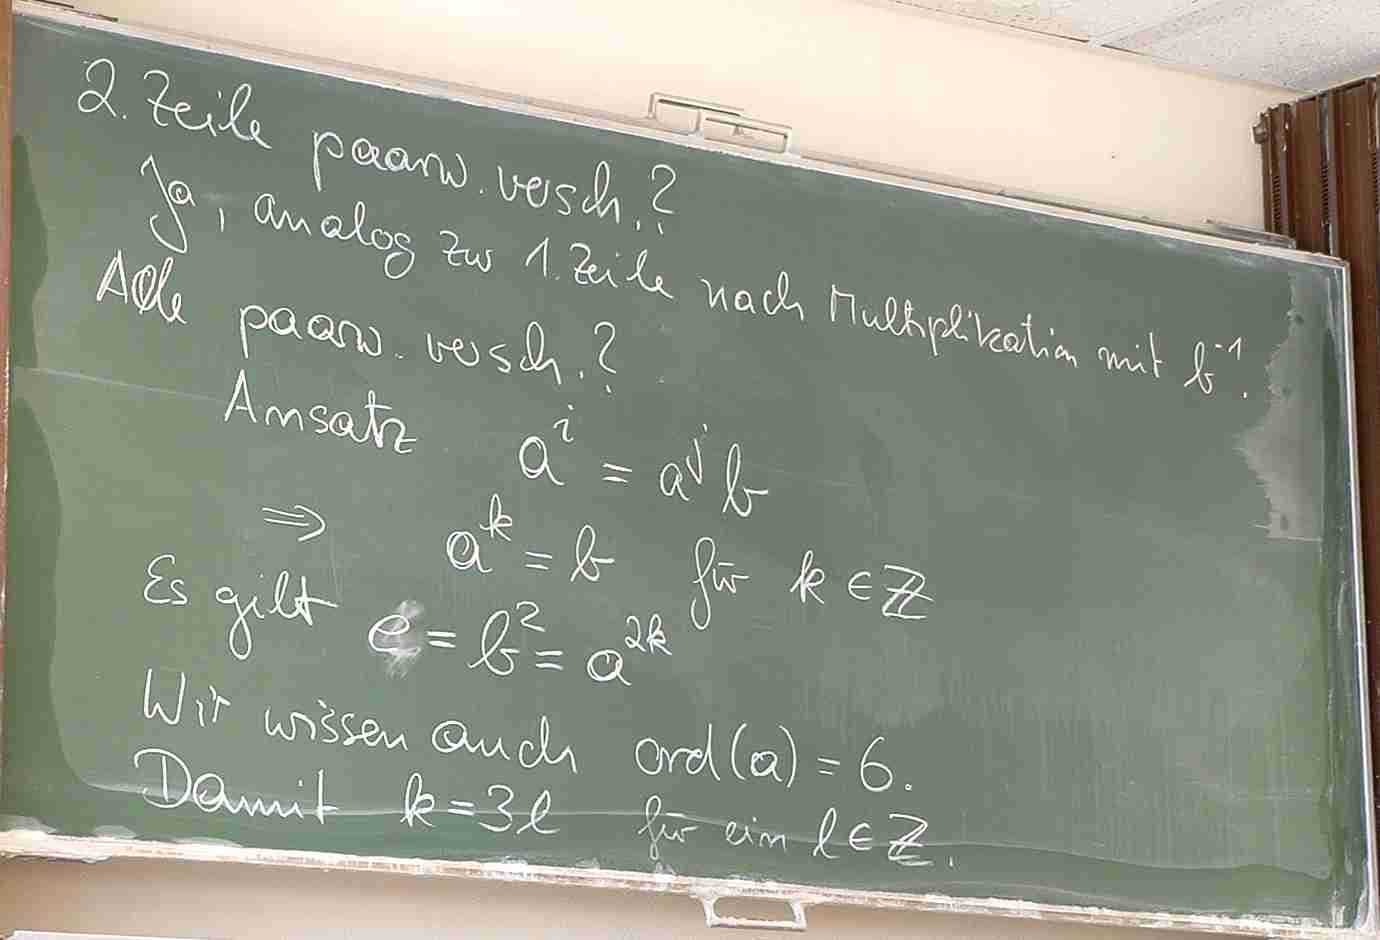 2. Zeile paarw. versch.?
Ja, analog zur 1. Zeile nach Multiplikation mit b⁻¹.
Alle paarw. versch.?
Ansatz aⁱ = aʲ b
⇒ aᵏ = b für k ∈ ℤ
Es gilt e = b² = a²ᵏ
Wir wissen auch ord(a) = 6.
Damit k = 3l für ein l ∈ ℤ.